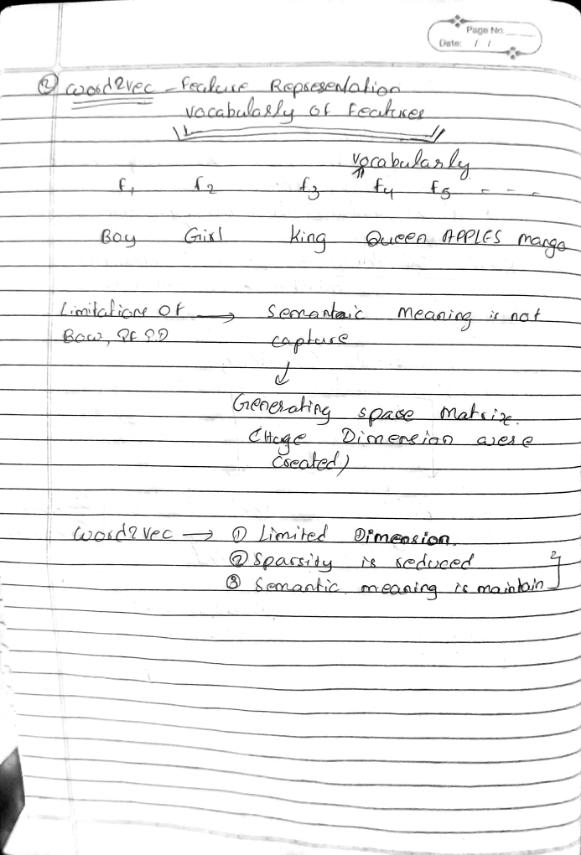 Page No.
Date: / /
② word2vec - Feature Representation
vocabularly of features
vocabularly
f1 f2 f3 f4 f5 - - -
Boy Girl King Queen APPLES mango
Limitations of → Semantaic meaning is not
BOW, capture
↓
Generating spase matrix.
(Huge Dimension were
created)
word2vec → ① Limited Dimension.
② Sparsity is reduced
③ Semantic meaning is maintain